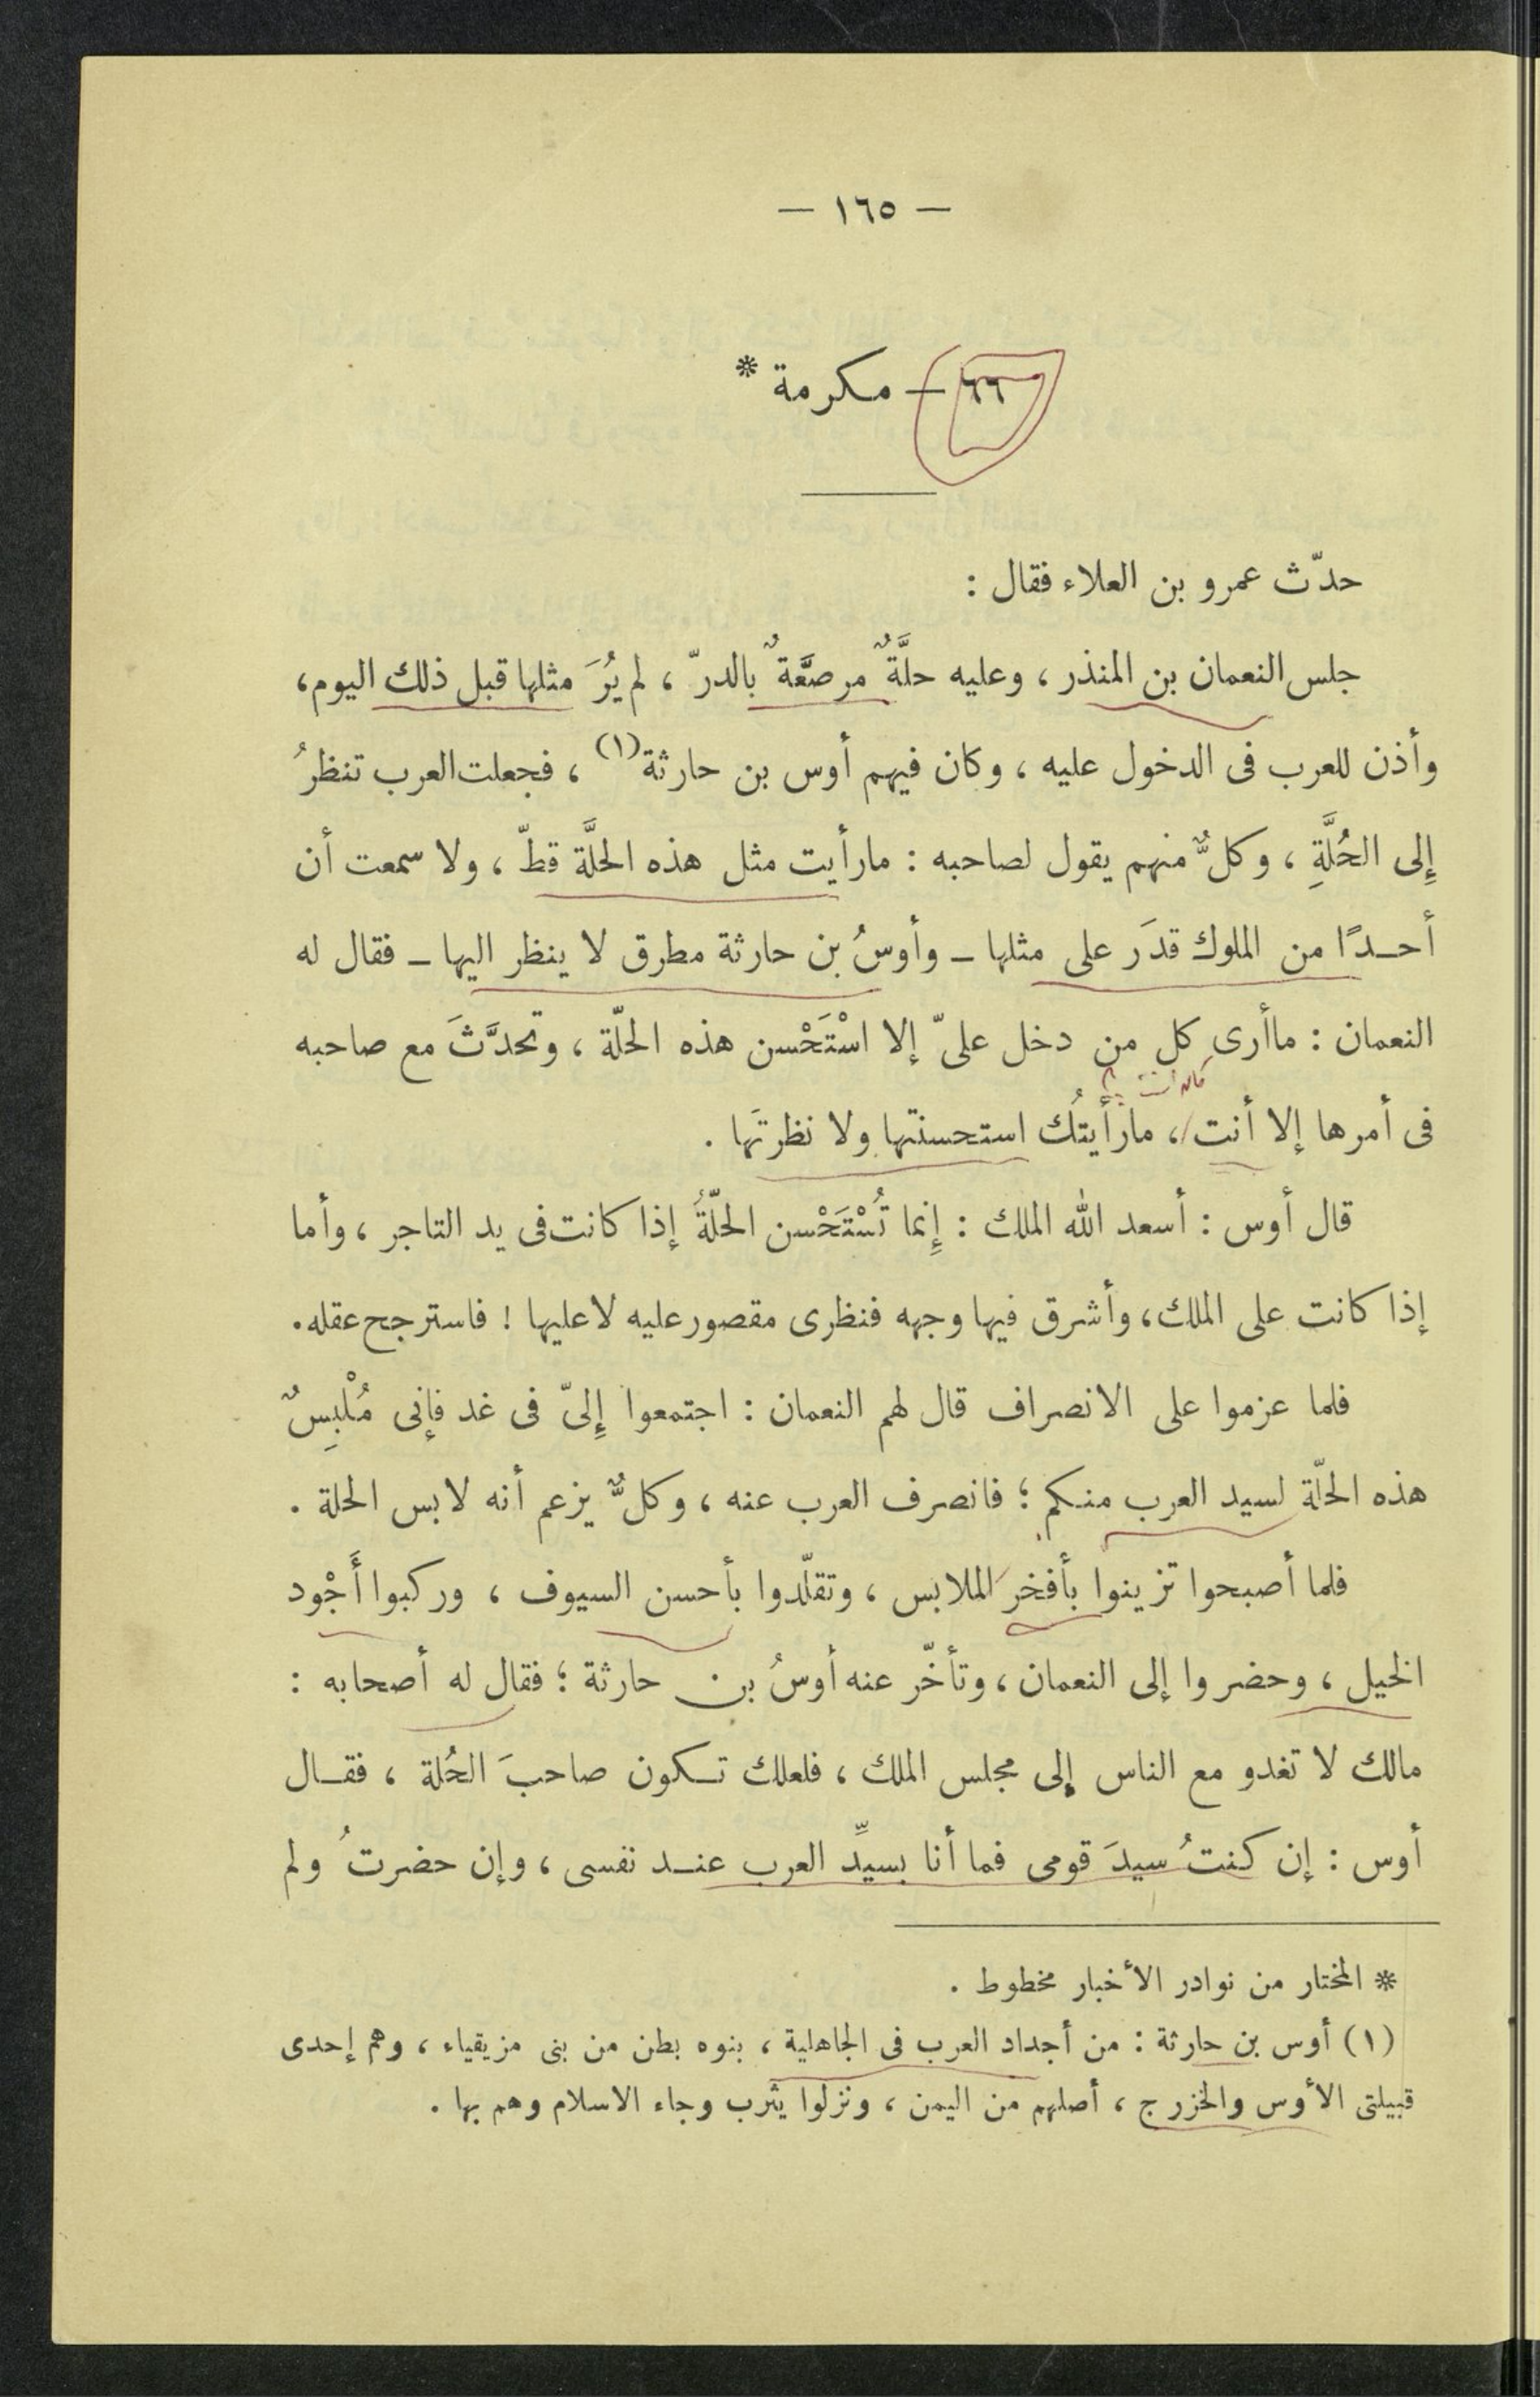 — ١٦٥ —
٦٦ — مكرمة *
حدّث عمرو بن العلاء فقال :
جلس النعمان بن المنذر ، وعليه حلَّةٌ مرصَّعةٌ بالدرّ ، لم يُرَ مثلها قبل ذلك اليوم ،
وأذن للعرب فى الدخول عليه ، وكان فيهم أوس بن حارثة (١) ، فجعلت العرب تنظرُ
إِلى الحُلَّةِ ، وكلٌّ منهم يقول لصاحبه : مارأيت مثل هذه الحلَّة قطّ ، ولا سمعت أن
أحدًا من الملوك قدَر على مثلها – وأوسُ بن حارثة مطرق لا ينظر اليها – فقال له
النعمان : ماأرى كل من دخل علىّ إلا اسْتَحْسن هذه الحلّة ، وتحدَّثَ مع صاحبه
فى أمرها إلا أنت ، مارأيتُك استحسنتها ولا نظرتَها .
قال أوس : أسعد الله الملك : إِنما تُسْتَحْسن الحلّةُ إذا كانت فى يد التاجر ، وأما
إذا كانت على الملك ، وأشرق فيها وجهه فنظرى مقصور عليه لا عليها ! فاسترجح عقله .
فلما عزموا على الانصراف قال لهم النعمان : اجتمعوا إِلىّ فى غد فإنى مُلْبِسٌ
هذه الحلّة لسيد العرب منكم ؛ فانصرف العرب عنه ، وكلٌّ يزعم أنه لابس الحلة .
فلما أصبحوا تزينوا بأفخر الملابس ، وتقلّدوا بأحسن السيوف ، وركبوا أَجْود
الخيل ، وحضروا إلى النعمان ، وتأخّر عنه أوسُ بن حارثة ؛ فقال له أصحابه :
مالك لا تغدو مع الناس إلى مجلس الملك ، فلعلك تكون صاحبَ الحُلة ، فقال
أوس : إن كنتُ سيدَ قومى فما أنا بسيِّد العرب عند نفسى ، وإن حضرتُ ولم
* المختار من نوادر الأخبار مخطوط .
(١) أوس بن حارثة : من أجداد العرب فى الجاهلية ، بنوه بطن من بنى مزيقياء ، وهم إحدى
قبيلتى الأوس والخزرج ، أصلهم من اليمن ، ونزلوا يثرب وجاء الاسلام وهم بها .